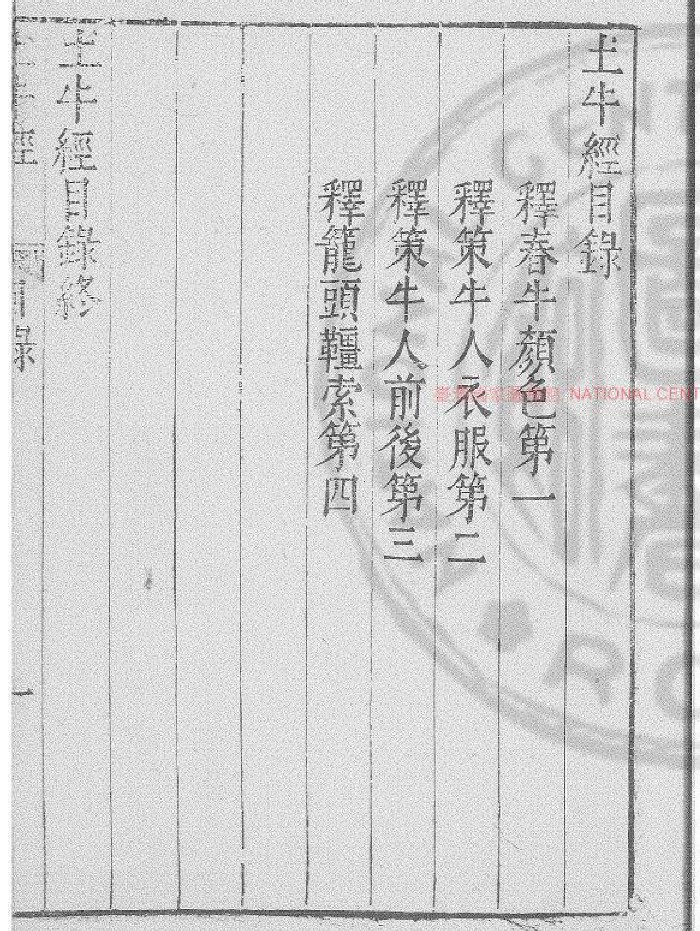 土牛經目錄
釋春牛顏色第一
釋策牛人衣服第二
釋策牛人前後第三
釋籠頭韁索第四
土牛經目錄終
土牛經
目錄
一
NATIONAL CENT